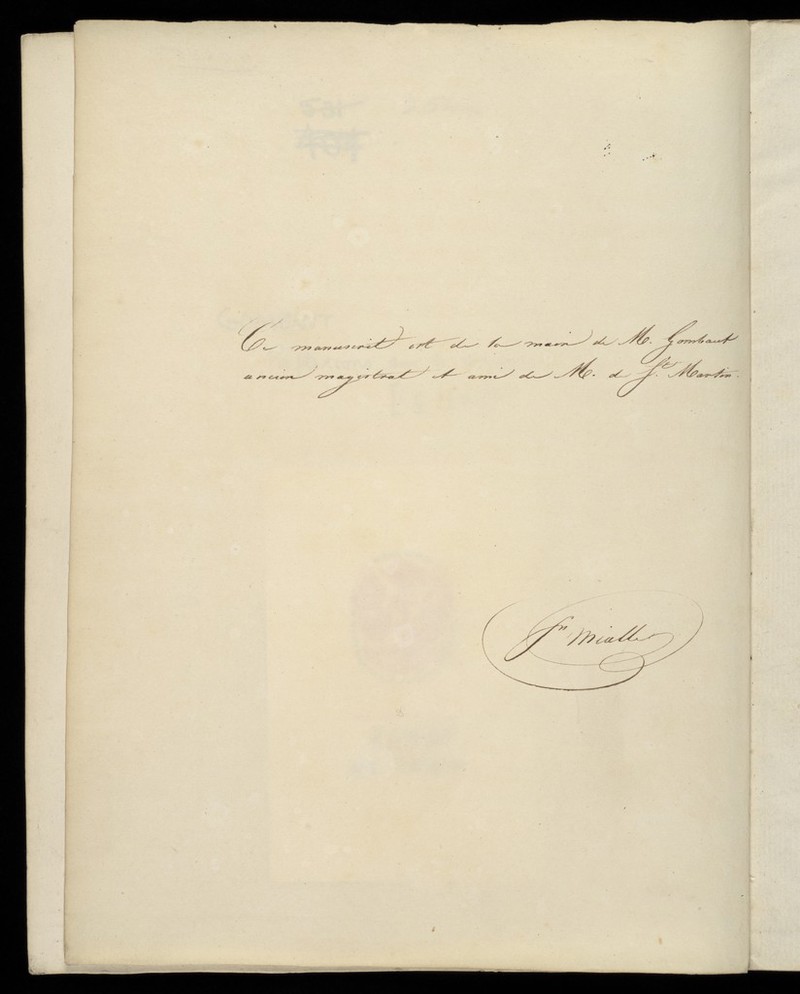 Ce manuscrit est de la main de M. Gombault
ancien magistrat et ami de M. de St. Martin.